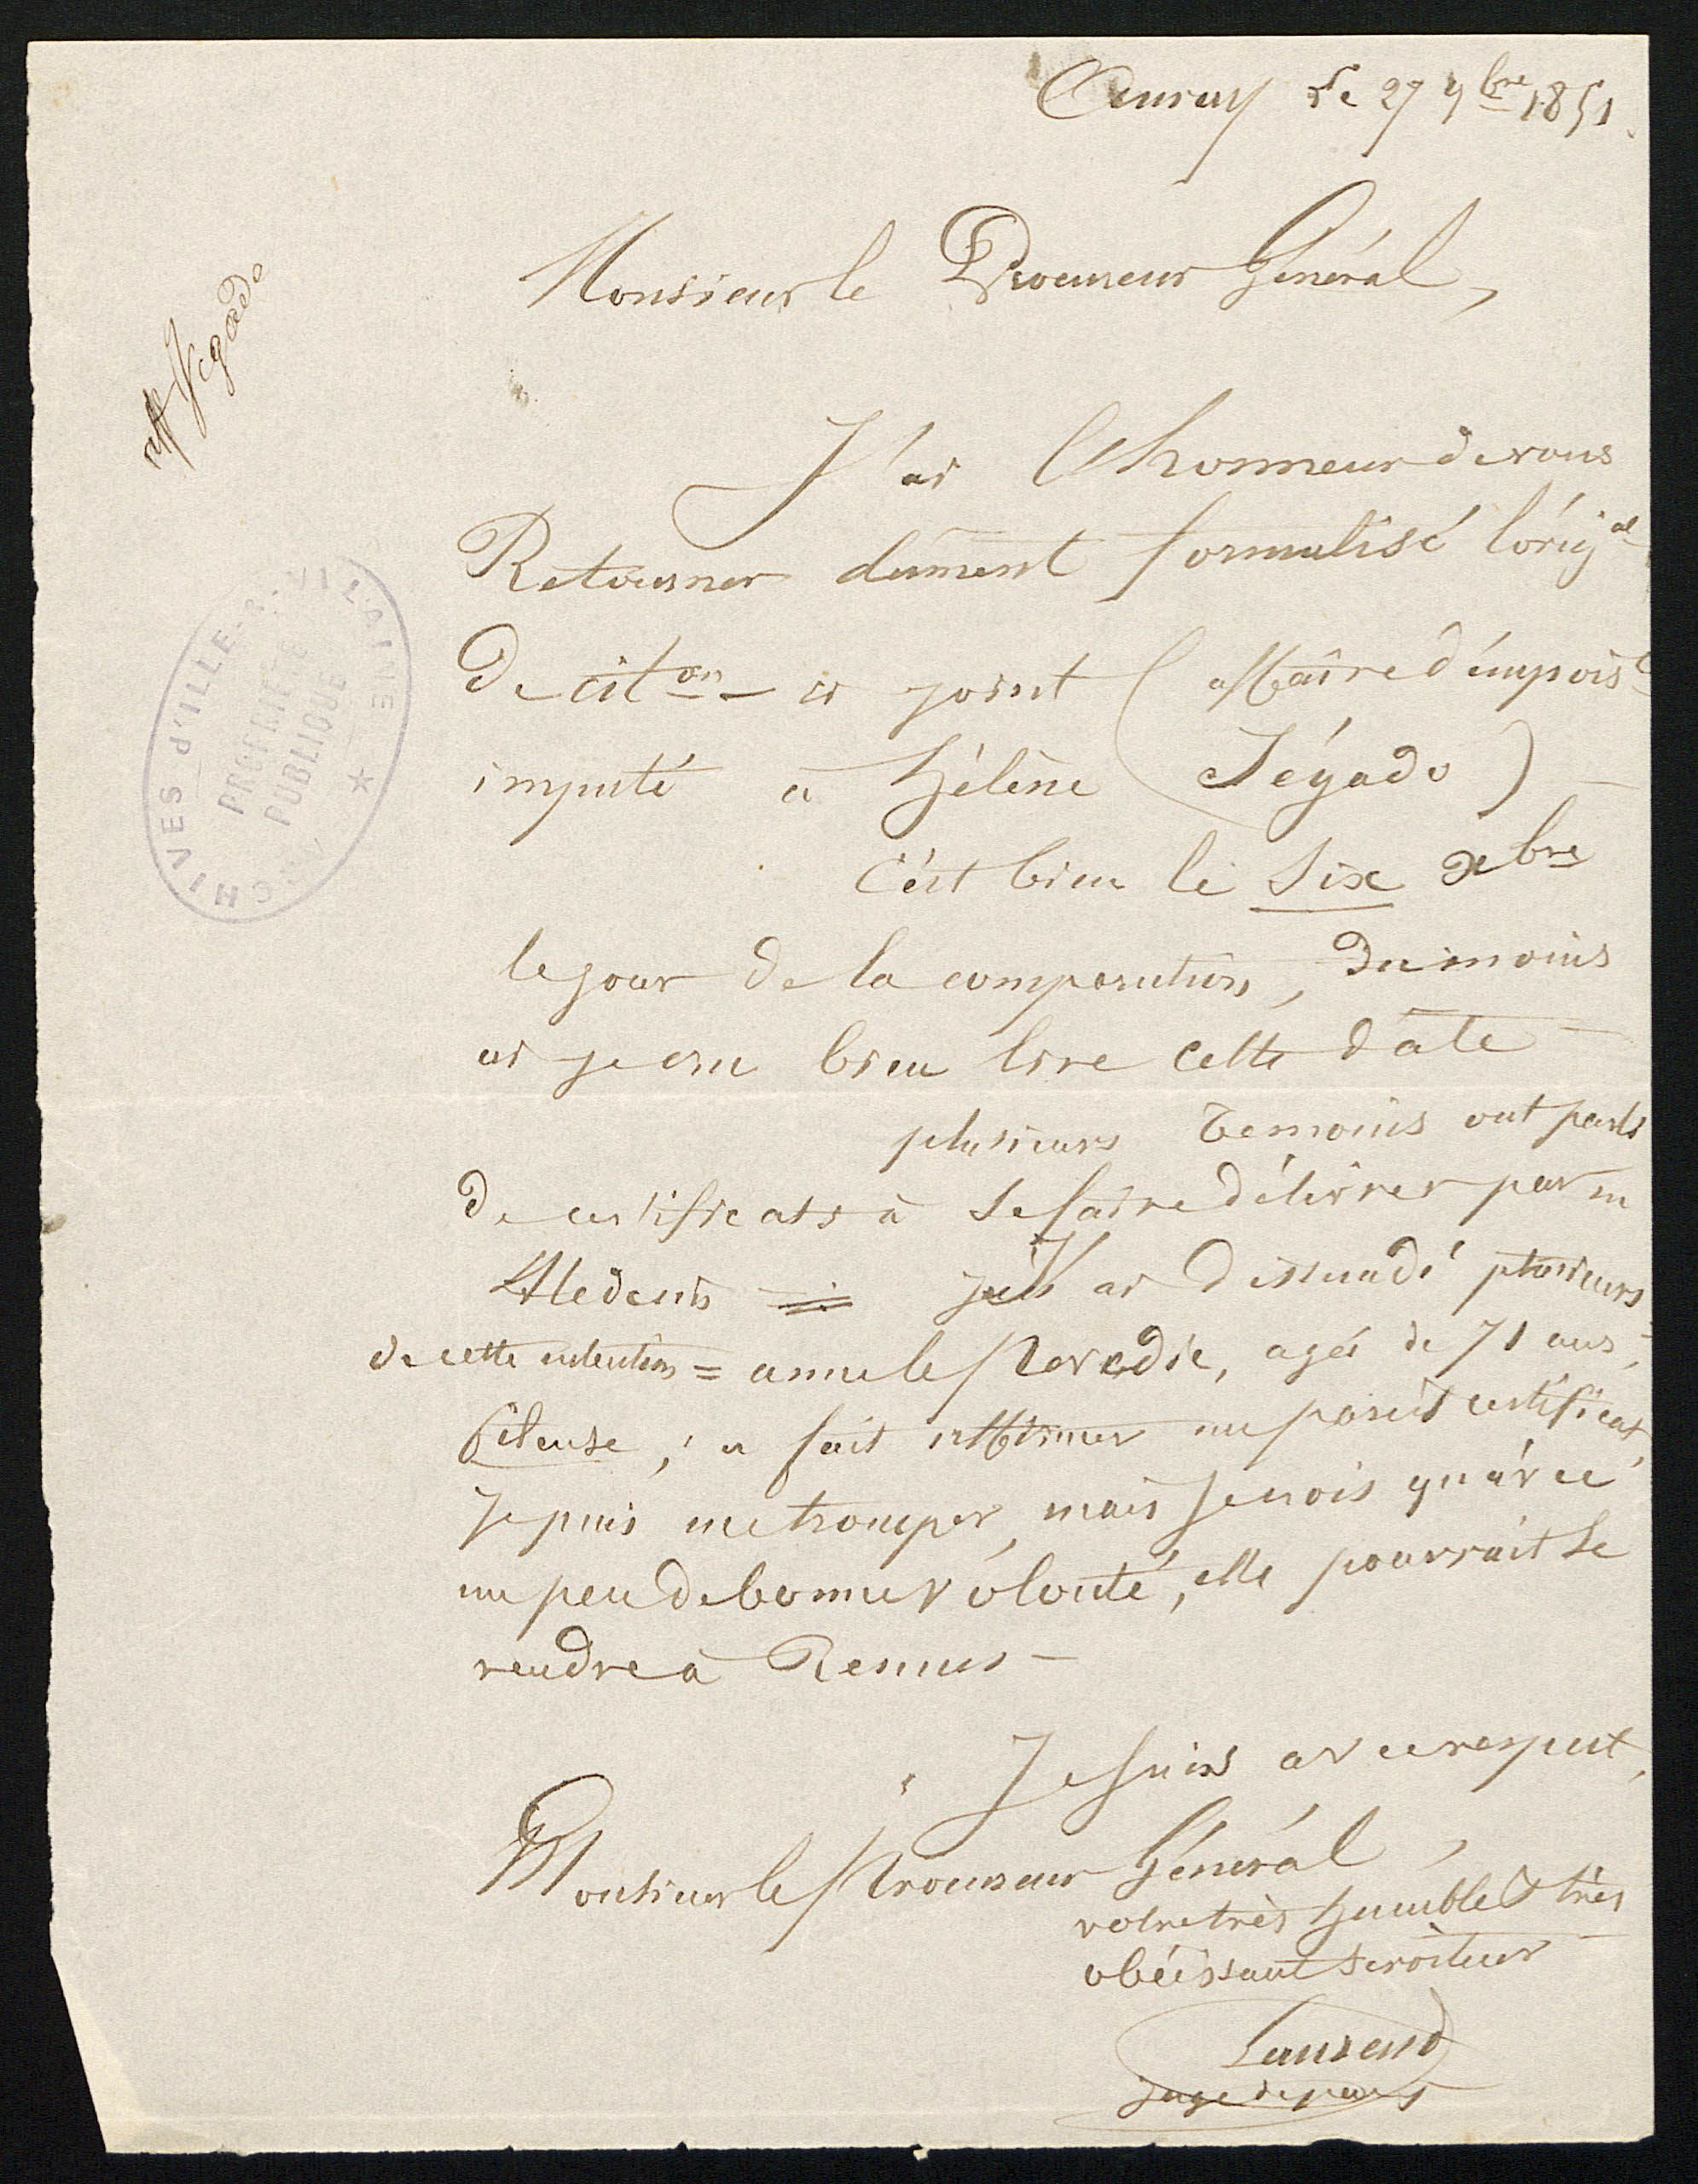 Auray le 27 9bre 1851.
Monsieur le Procureur Général,
aff Jégado
J'ai l'honneur de vous
Retourner dument formalisé l'origal
Deciton ci joint (affaire d'empoist
imputé à Hélène Jégado) -
C'est bien le Six Xbre
le jour De la comparution, Du moins
ai je cru bien lire cette date -
plusieurs temoins ont parlé
De certificats à Se faire délivrer par un
Medecin = je les ai Dissuadé plusieurs
de cette intention = anne le Parodic, agée de 71 ans,
fileuse, a fait un pareil certificat,
Je puis me tromper, mais Je crois qu'avec
un peu de bonne volonté, elle pourrait se
rendre à Rennes -
Je suis avec respect,
Monsieur le Procureur Général,
votre très humble & très
obéissant Serviteur -
Laurand
Juge de paix
ARCHIVES d'ILLE-&-VILAINE
PROPRIÉTÉ
PUBLIQUE